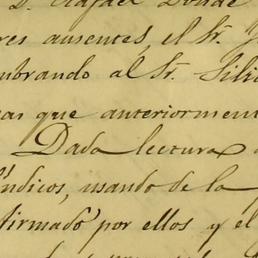 D. Rafael Donde
res ausentes, el Sr. J
mbrando al Sr. Sili
sas que anteriorment
Dada lectura
índicos, usando de la
firmado por ellos y el